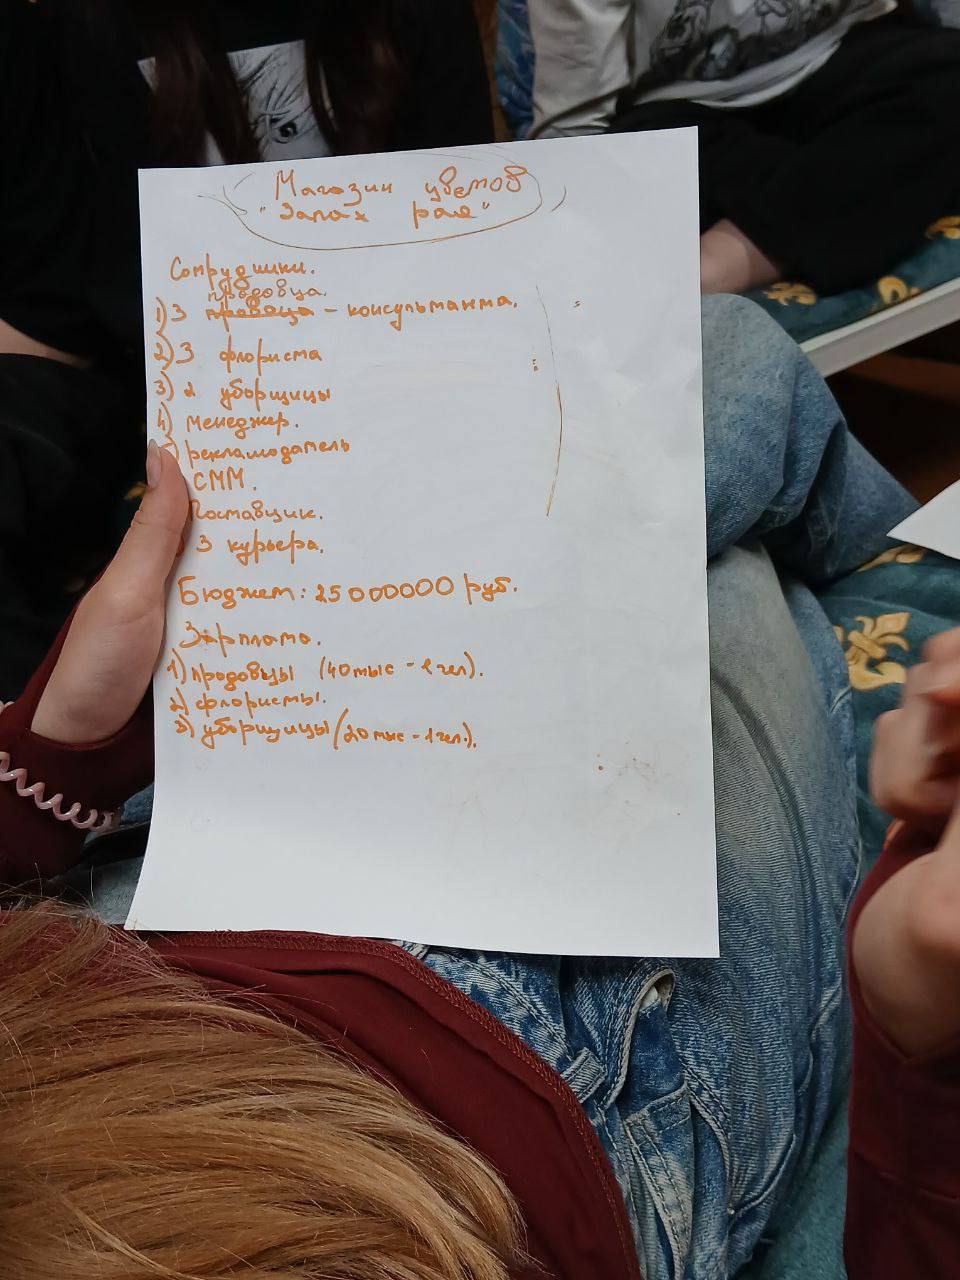 Магазин цветов
"Запах рая"
Сотрудники.
продовца.
1) 3 провоца - консультанта.
2) 3 флориста
3) 2 уборщицы
4) менеджер.
рекламодатель
СММ.
Поставщик.
3 курьера.
Бюджет: 25 000000 руб.
Зарплата.
1) продовцы (40 тыс - 1 чел).
2) флористы.
3) уборщицы (20 тыс - 1 чел.).